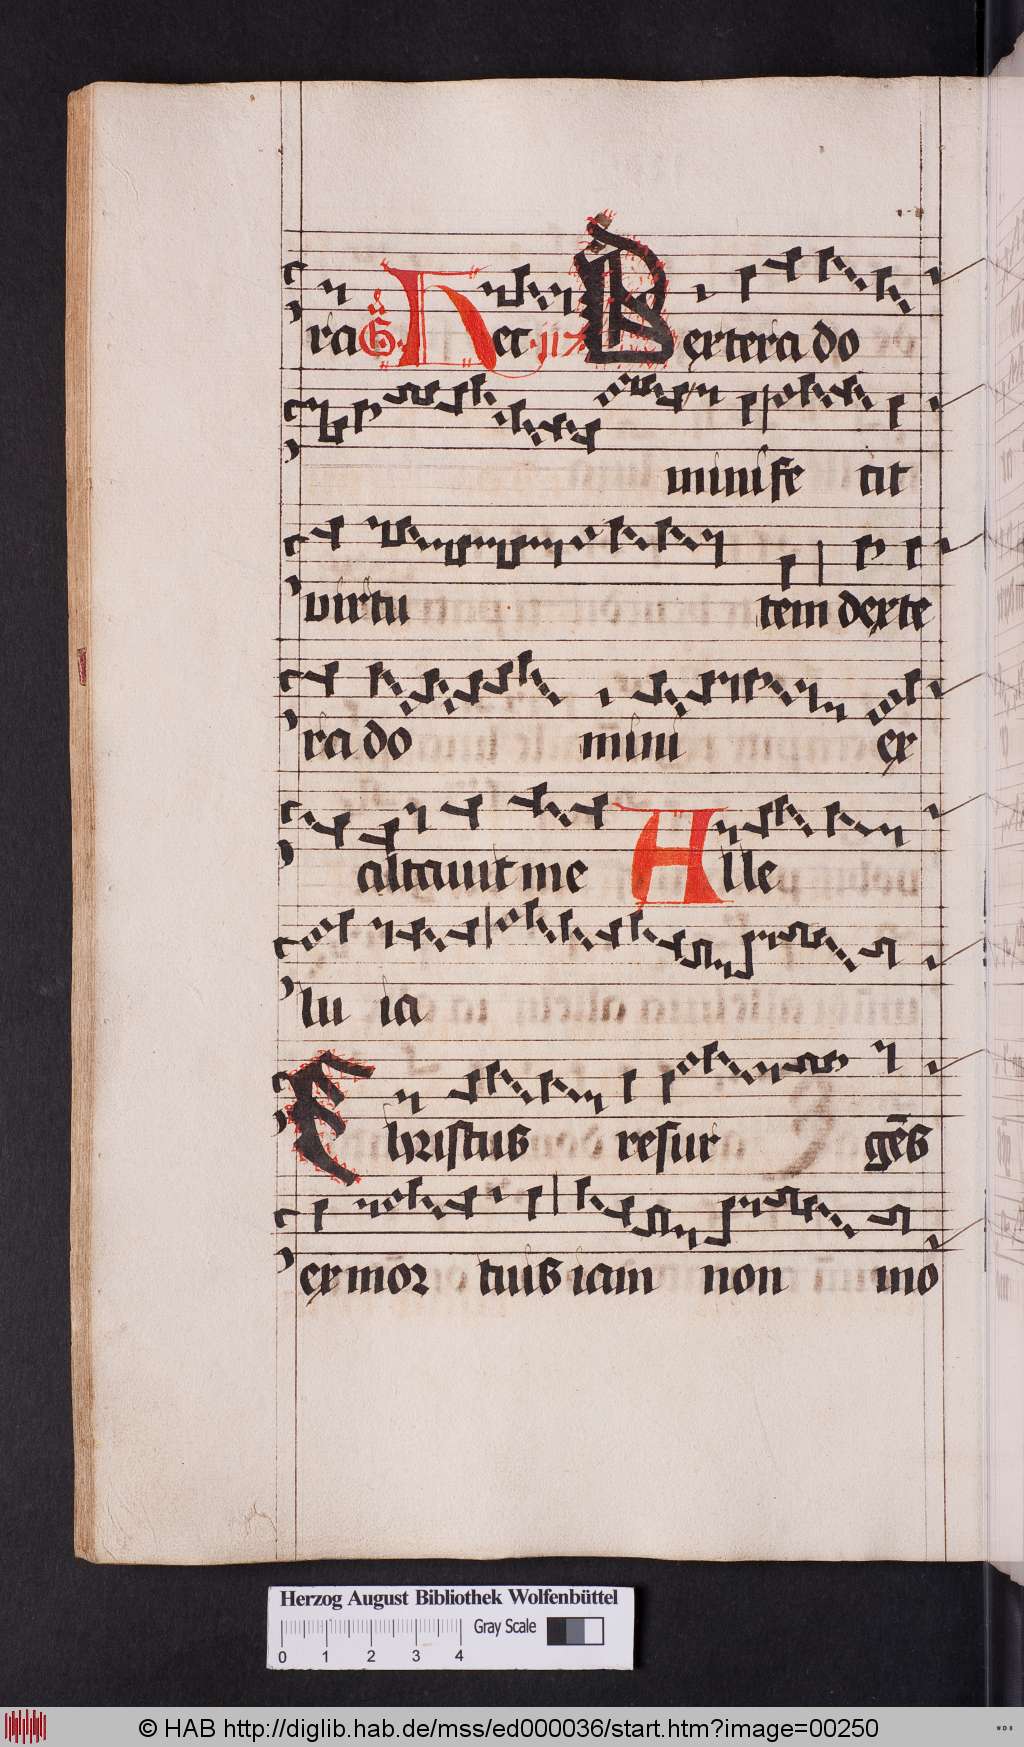 ra Gͣ. Hec ·117· Dextera do
minife cit
virtu tem dexte
ra do mini ex
altauit me Alle
lu ia
Christus resur gēs
ex mor tuis iam non mo
Herzog August Bibliothek Wolfenbüttel
Gray Scale
0 1 2 3 4
© HAB http://diglib.hab.de/mss/ed000036/start.htm?image=00250